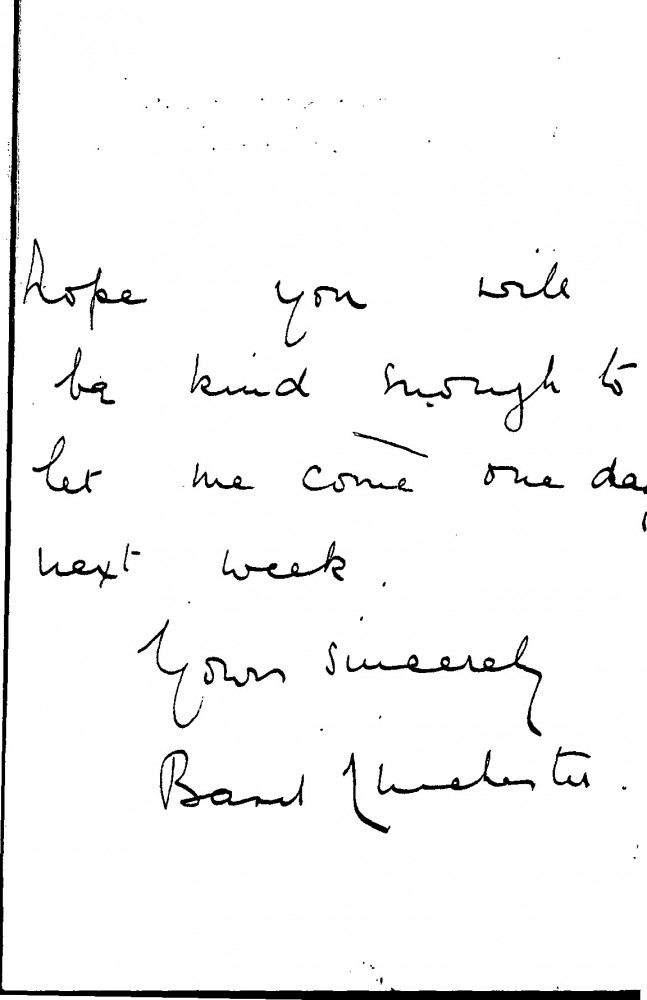 hope you will
be kind enough to
let me come one day
next week.
Yours sincerely
Basil